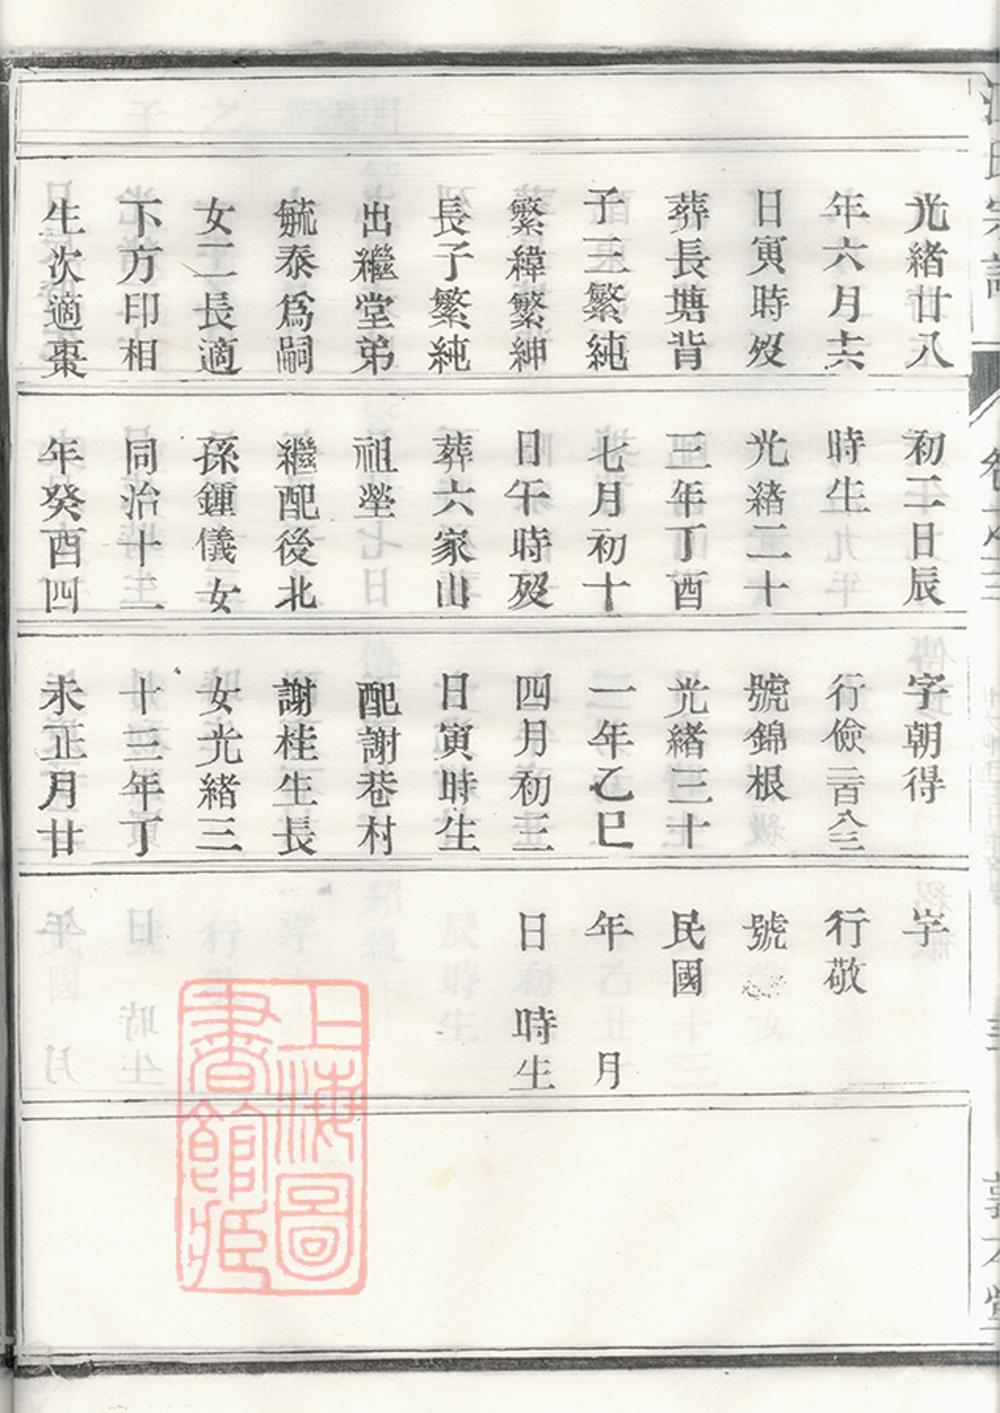 光緒廿八
年六月十六
日寅時歿
葬長塘背
子三繁純
繁緯繁紳
長子繁純
出繼堂弟
毓泰為嗣
女二長適
下方印相
生次適棗
初二日辰
時生
光緒二十
三年丁酉
七月初十
日午時歿
葬六家山
祖塋
繼配後北
孫鍾儀女
同治十二
年癸酉四
字朝得
行儉三百八三
號錦根
光緒三十
一年乙巳
四月初三
日寅時生
配謝巷村
謝桂生長
女光緒三
十三年丁
未正月廿
字
行敬
號
民國
年 月
日 時生
上海圖
書館藏